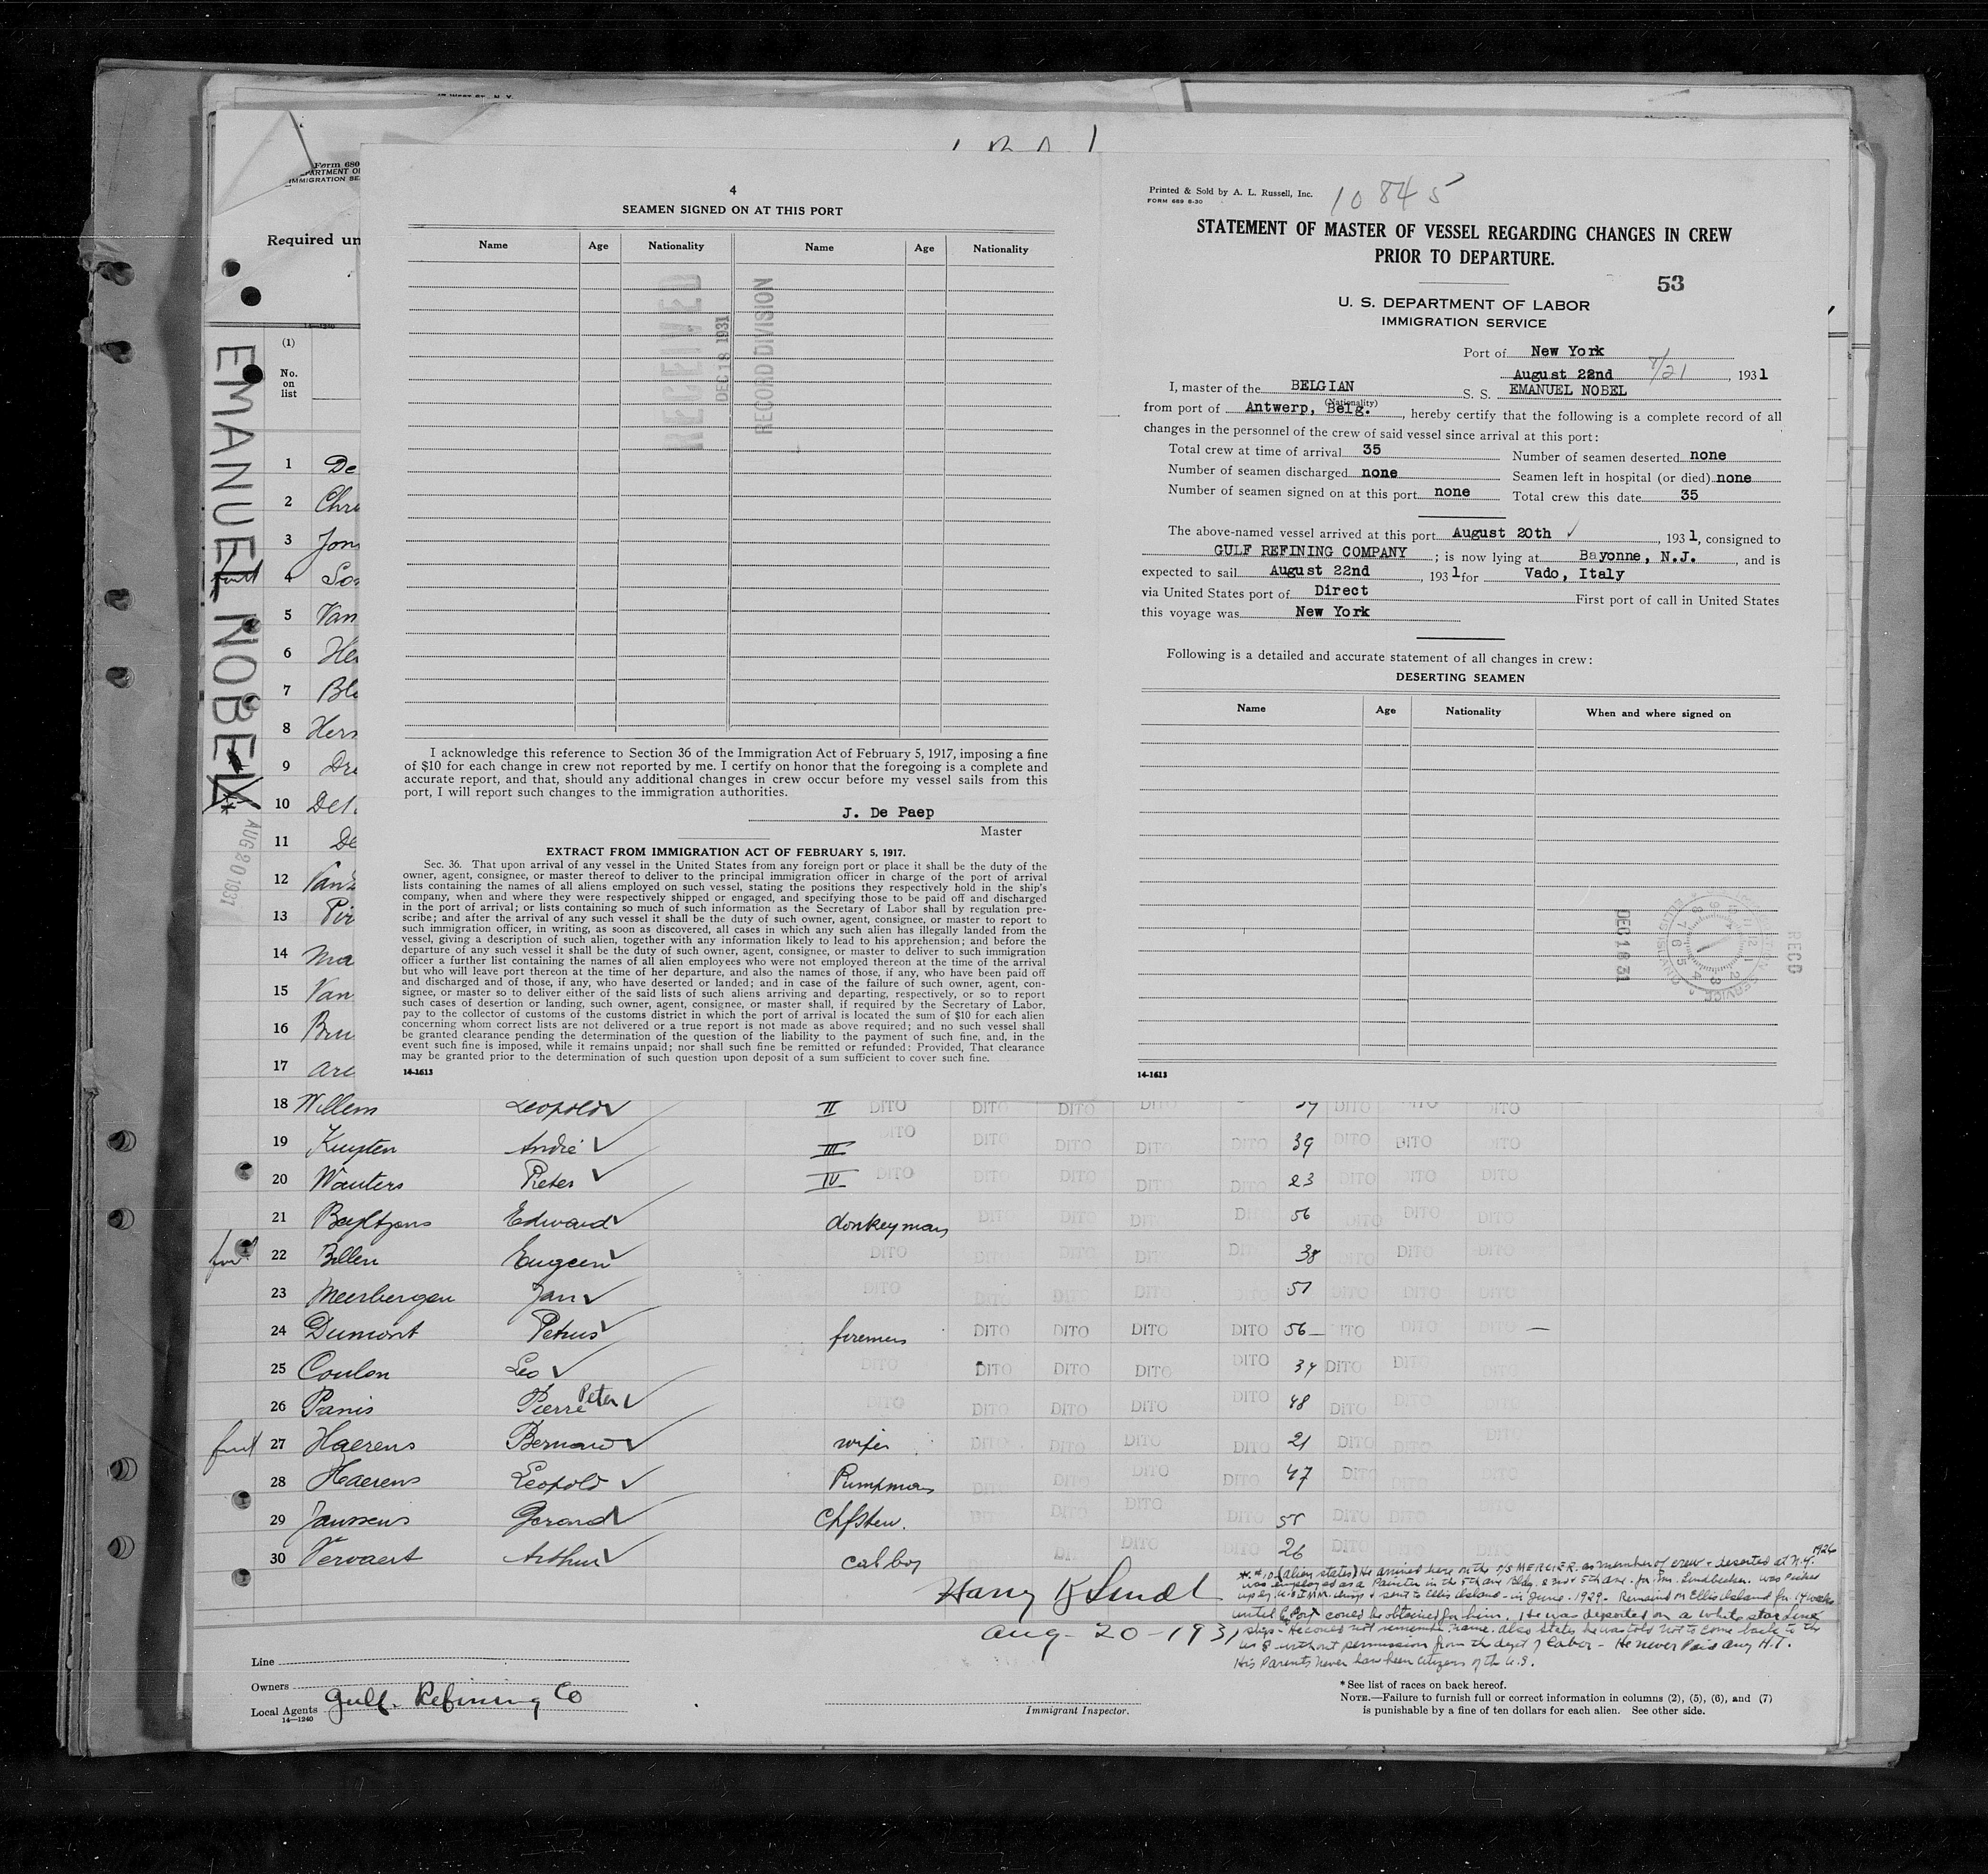 4
SEAMEN SIGNED ON AT THIS PORT
Name Age Nationality Name Age Nationality
RECEIVED
DEC 18 1931
RECORD DIVISION
I acknowledge this reference to Section 36 of the Immigration Act of February 5, 1917, imposing a fine
of $10 for each change in crew not reported by me. I certify on honor that the foregoing is a complete and
accurate report, and that, should any additional changes in crew occur before my vessel sails from this
port, I will report such changes to the immigration authorities.
J. De Paep
Master
EXTRACT FROM IMMIGRATION ACT OF FEBRUARY 5, 1917.
Sec. 36. That upon arrival of any vessel in the United States from any foreign port or place it shall be the duty of the
owner, agent, consignee, or master thereof to deliver to the principal immigration officer in charge of the port of arrival
lists containing the names of all aliens employed on such vessel, stating the positions they respectively hold in the ship's
company, when and where they were respectively shipped or engaged, and specifying those to be paid off and discharged
in the port of arrival; or lists containing so much of such information as the Secretary of Labor shall by regulation pre-
scribe; and after the arrival of any such vessel it shall be the duty of such owner, agent, consignee, or master to report to
such immigration officer, in writing, as soon as discovered, all cases in which any such alien has illegally landed from the
vessel, giving a description of such alien, together with any information likely to lead to his apprehension; and before the
departure of any such vessel it shall be the duty of such owner, agent, consignee, or master to deliver to such immigration
officer a further list containing the names of all alien employees who were not employed thereon at the time of the arrival
but who will leave port thereon at the time of her departure, and also the names of those, if any, who have been paid off
and discharged and of those, if any, who have deserted or landed; and in case of the failure of such owner, agent, con-
signee, or master so to deliver either of the said lists of such aliens arriving and departing, respectively, or so to report
such cases of desertion or landing, such owner, agent, consignee, or master shall, if required by the Secretary of Labor,
pay to the collector of customs of the customs district in which the port of arrival is located the sum of $10 for each alien
concerning whom correct lists are not delivered or a true report is not made as above required; and no such vessel shall
be granted clearance pending the determination of the question of the liability to the payment of such fine, and, in the
event such fine is imposed, while it remains unpaid; nor shall such fine be remitted or refunded: Provided, That clearance
may be granted prior to the determination of such question upon deposit of a sum sufficient to cover such fine.
14-1613
Printed & Sold by A. L. Russell, Inc. 10845
FORM 689 8-30
STATEMENT OF MASTER OF VESSEL REGARDING CHANGES IN CREW
PRIOR TO DEPARTURE.
53
U. S. DEPARTMENT OF LABOR
IMMIGRATION SERVICE
Port of New York
August 22nd 8/21, 1931
I, master of the BELGIAN S. S. EMANUEL NOBEL
(Nationality)
from port of Antwerp, Belg., hereby certify that the following is a complete record of all
changes in the personnel of the crew of said vessel since arrival at this port:
Total crew at time of arrival 35 Number of seamen deserted none
Number of seamen discharged none Seamen left in hospital (or died) none
Number of seamen signed on at this port none Total crew this date 35
The above-named vessel arrived at this port August 20th ✓, 1931, consigned to
GULF REFINING COMPANY; is now lying at Bayonne, N.J., and is
expected to sail August 22nd, 1931 for Vado, Italy
via United States port of Direct First port of call in United States
this voyage was New York
Following is a detailed and accurate statement of all changes in crew:
DESERTING SEAMEN
Name Age Nationality When and where signed on
DEC 18 31
RECD
14-1613
Form 680
IMMIGRATION SE
Required un
14-1240
EMANUEL NOBEL
AUG 20 1931
(1)
No.
on
list
1 De
2 Chr
3 Jon
4 So
5 Van
6 He
7 Bl
8 Hers
9 Dr
10 De
11 De
12 Van
13 Pir
14 Ma
15 Van
16 Bru
17 Are
18 Willem Leopold ✓ II DITO DITO DITO DITO DITO DITO
19 Kuyten André ✓ III DITO DITO DITO DITO DITO 39 DITO DITO DITO
20 Wauters Pieter ✓ IV DITO DITO DITO DITO DITO 23 DITO DITO DITO
21 Edward ✓ donkeyman DITO DITO DITO 56 DITO DITO DITO
22 Billen Eugeen ✓ DITO DITO 38 DITO DITO DITO
23 Meerbergen Jan ✓ DITO DITO 51 DITO DITO DITO
24 Dumont Petrus ✓ firemen DITO DITO DITO DITO 56 DITO DITO
25 Coulon Leo ✓ DITO DITO DITO DITO DITO 34 DITO DITO
26 Panis Pierre Peter ✓ DITO DITO DITO DITO DITO 48 DITO
27 Haerens Bernard ✓ wiper DITO DITO DITO DITO 21 DITO DITO DITO
28 Haerens Leopold ✓ Pumpman DITO DITO DITO DITO 47 DITO DITO
29 Janssens Gerard ✓ Chfstew. DITO DITO DITO 55 DITO DITO
30 Vervaert Arthur ✓ cabboy DITO DITO DITO 26 DITO DITO DITO
Harry
Aug-20-1931
* #10 (alien states) He arrived here on the S/S MERCIER as member of crew & deserted at N.Y. 1926
was employed as a Painter in the 5th ave Bldg. & 5th ave. for was picked
up by & sent to Ellis Island - in June - 1929 - Remained in Ellis Island for 14 weeks
until could be obtained for him. He was deported on a White Star Line
ship - He could not remember name. Also states he was told not to come back to the
U.S without permission from the dept of Labor - He never Paid any H.T.
His Parents never have been citizens of the U.S.
Line
Owners
Local Agents Gulf. Refining Co
14-1240
Immigrant Inspector.
* See list of races on back hereof.
NOTE.—Failure to furnish full or correct information in columns (2), (5), (6), and (7)
is punishable by a fine of ten dollars for each alien. See other side.